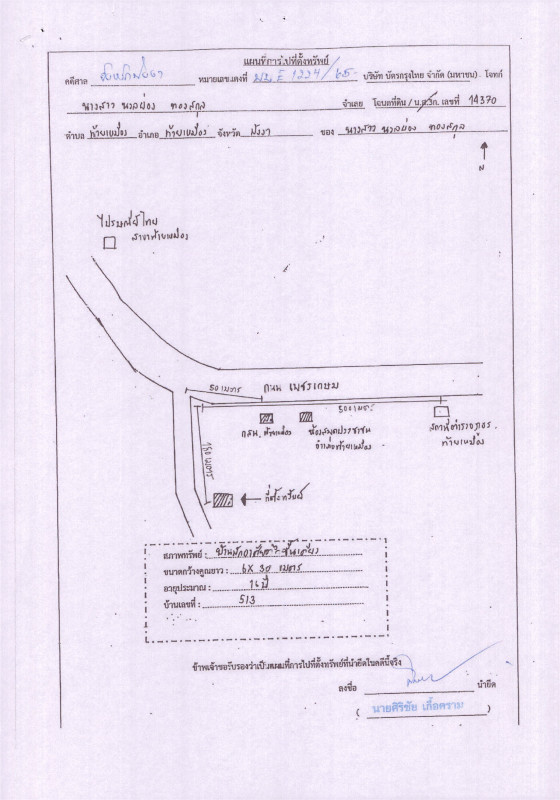 แผนที่การไปที่ตั้งทรัพย์
คดีศาล จังหวัดพังงา หมายเลขแดงที่ ผบ.E 1224/65 บริษัท บัตรกรุงไทย จำกัด (มหาชน) โจทก์
นางสาว นวลผ่อง ทองสกุล จำเลย โฉนดที่ดิน / น.ส.3ก. เลขที่ 14370
ตำบล ท้ายเหมือง อำเภอ ท้ายเหมือง จังหวัด พังงา ของ นางสาว นวลผ่อง ทองสกุล
N
ไปรษณีย์ไทย
สาขาท้ายเหมือง
50 เมตร ถนน เพชรเกษม
500 เมตร
กศน. ท้ายเหมือง
ห้องสมุดประชาชน
อำเภอท้ายเหมือง
สถานีตำรวจภูธร
ท้ายเหมือง
เมตร
ที่ตั้งทรัพย์
สภาพทรัพย์ : บ้านพักอาศัย ชั้นเดียว
ขนาดกว้างคูณยาว : 6X 30 เมตร
อายุประมาณ : 16 ปี
บ้านเลขที่ : 513
ข้าพเจ้าขอรับรองว่าเป็นแผนที่การไปที่ตั้งทรัพย์ที่นำยึดในคดีนี้จริง
ลงชื่อ นำยึด
( นายศิริชัย เกื้อคราม )